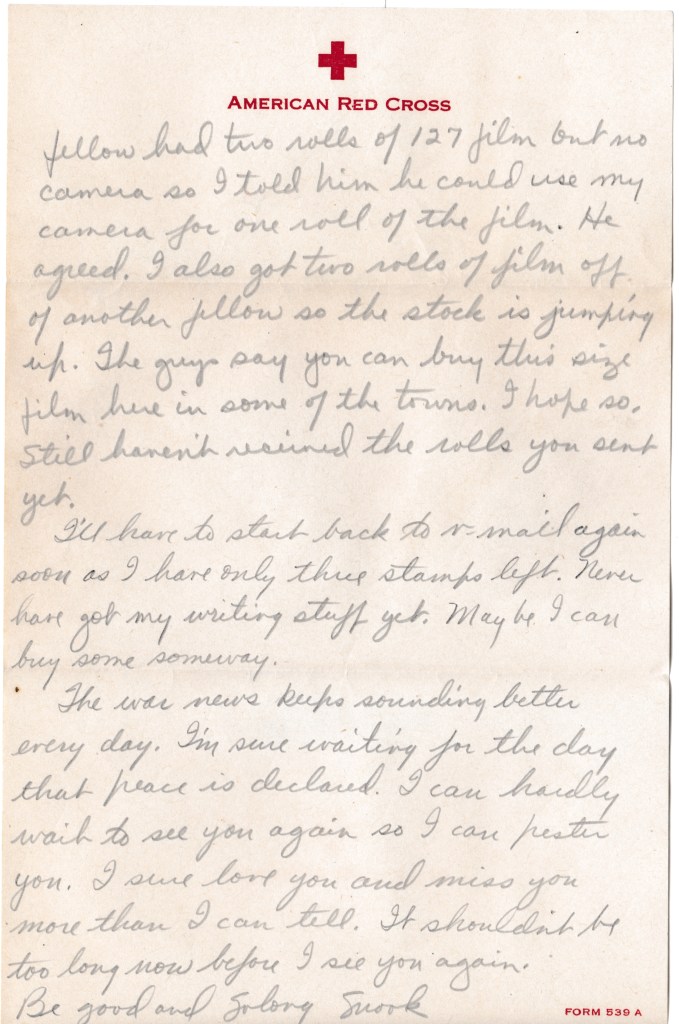 AMERICAN RED CROSS
fellow had two rolls of 127 film but no
camera so I told him he could use my
camera for one roll of the film. He
agreed. I also got two rolls of film off
of another fellow so the stock is jumping
up. The guys say you can buy this size
film here in some of the towns. I hope so.
Still haven't received the rolls you sent
yet.
I'll have to start back to v-mail again
soon as I have only three stamps left. Never
have got my writing stuff yet. Maybe I can
buy some someway.
The war news keeps sounding better
every day. I'm sure waiting for the day
that peace is declared. I can hardly
wait to see you again so I can pester
you. I sure love you and miss you
more than I can tell. It shouldn't be
too long now before I see you again.
Be good and Solong Snook
FORM 539 A